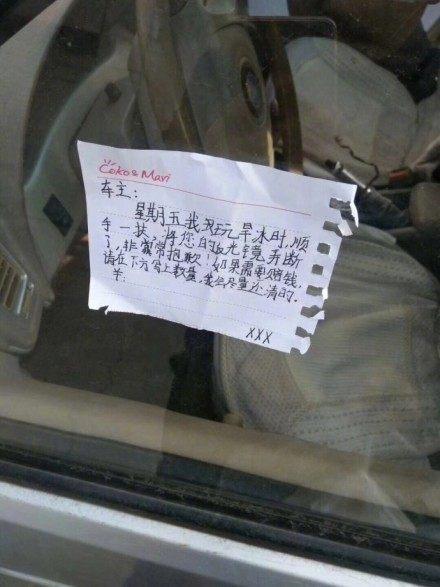 Coko & Mavi
车主：
星期五我玩旱冰时，顺
手一扶，将您的反光镜弄断
了，非常抱歉！如果需要赔钱，
请在下方写上数量，我会尽量还清的.
羊:
XXX